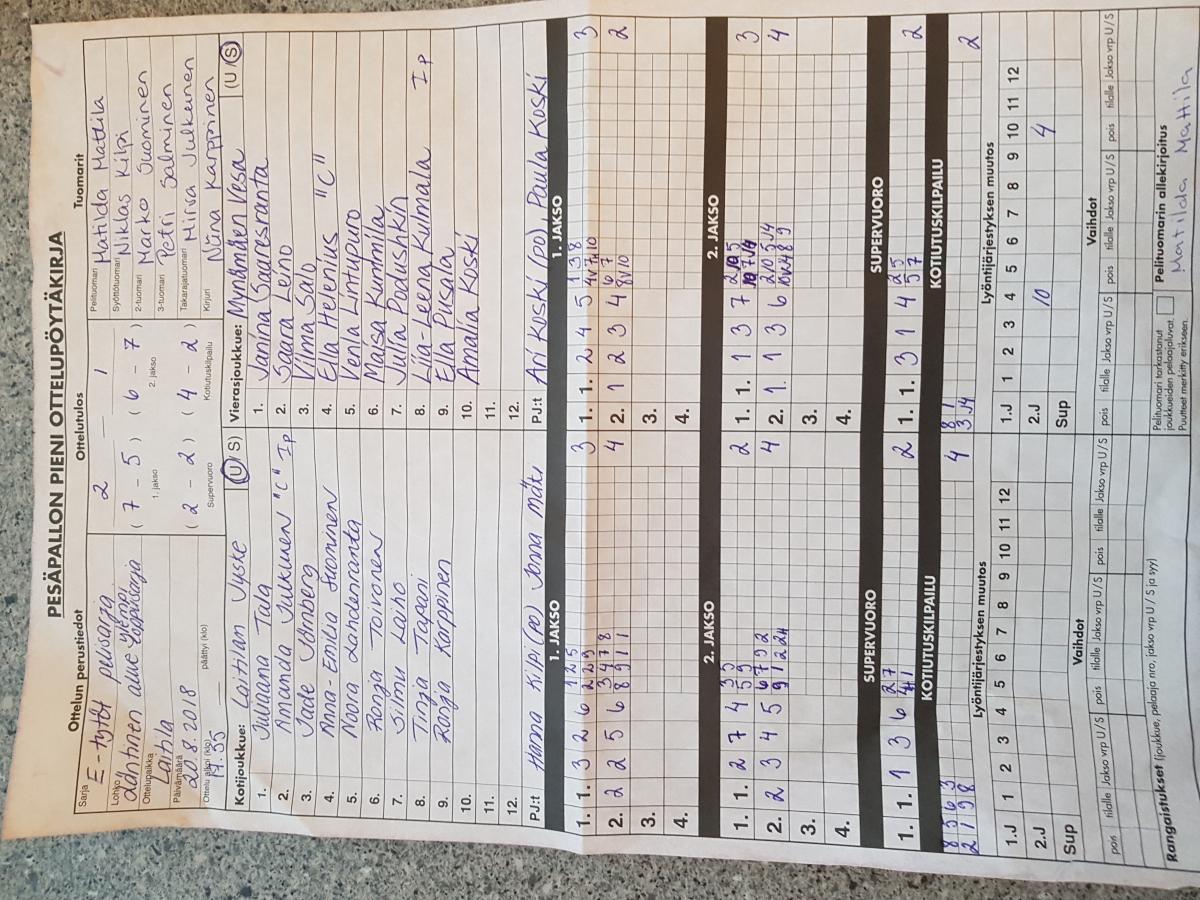 PESÄPALLON PIENI OTTELUPÖYTÄKIRJA
Ottelun perustiedot
Sarja E-tytöt pelisarja
Lohko Läntinen alue ylempi
Ottelupaikka Laitila
Päivämäärä 20.8.2018
Ottelu alkoi (klo) 17.35 päättyi (klo)
Ottelutulos
2 — 1
( 7 - 5 ) ( 6 - 7 )
1. jakso 2. jakso
( 2 - 2 ) ( 4 - 2 )
Supervuoro Kotiutuskilpailu
Tuomarit
Pelituomari Matilda Mattila
Syöttötuomari Niklas Kilpi
2-tuomari Marko Suominen
3-tuomari Petri Salminen
Takarajatuomari Mirva Julkunen
Kirjuri Niina Karppinen
Kotijoukkue: Laitilan Jyske (U S)
1. Juliaana Tala
2. Amanda Julkunen "C" Ip
3. Jade Stömberg
4. Anna-Emilia Suominen
5. Noora Lahdenranta
6. Ronja Toivonen
7. Simu Laiho
8. Tinja Tapani
9. Ronja Karppinen
10.
11.
12.
PJ:t Hanna Kilpi (PO) Jonna Mäki
Vierasjoukkue: Mynämäen Vesa (U S)
1. Janina Saaresranta
2. Saara Leino
3. Vilma Salo
4. Ella Helenius "C"
5. Venla Lintupuro
6. Maisa Kummila
7. Julia Podushkin
8. Liia-Leena Kulmala Ip
9. Ella Pirsala
10. Amalia Koski
11.
12.
PJ:t Ari Koski (PO), Paula Koski
1. JAKSO
1. 1. 3 2 6 3
2. 2 5 6 4
3.
4.
1. JAKSO
1. 1. 2 4 5 3
2. 1 2 3 4 2
3.
4.
2. JAKSO
1. 1. 2 7 4 2
2. 3 4 5 4
3.
4.
2. JAKSO
1. 1. 1 3 7 3
2. 1 3 6 4
3.
4.
SUPERVUORO
1. 1. 1 3 6 2
SUPERVUORO
1. 1. 3 1 4 2
KOTIUTUSKILPAILU
8 5 6 3
2 1 9 8
4
KOTIUTUSKILPAILU
8 1
3 J4
2
Lyöntijärjestyksen muutos
1.J 1 2 3 4 5 6 7 8 9 10 11 12
2.J
Sup
Lyöntijärjestyksen muutos
1.J 1 2 3 4 5 6 7 8 9 10 11 12
2.J 10 4
Sup
Vaihdot
pois tilalle Jakso vrp U/S pois tilalle Jakso vrp U/S pois tilalle Jakso vrp U/S
Vaihdot
pois tilalle Jakso vrp U/S pois tilalle Jakso vrp U/S pois tilalle Jakso vrp U/S
Rangaistukset (joukkue, pelaaja nro, jakso vrp U/S ja syy)
Pelituomari tarkastanut
joukkueiden pelaajaluvat.
Puutteet merkitty erikseen.
Pelituomarin allekirjoitus
Matilda Mattila